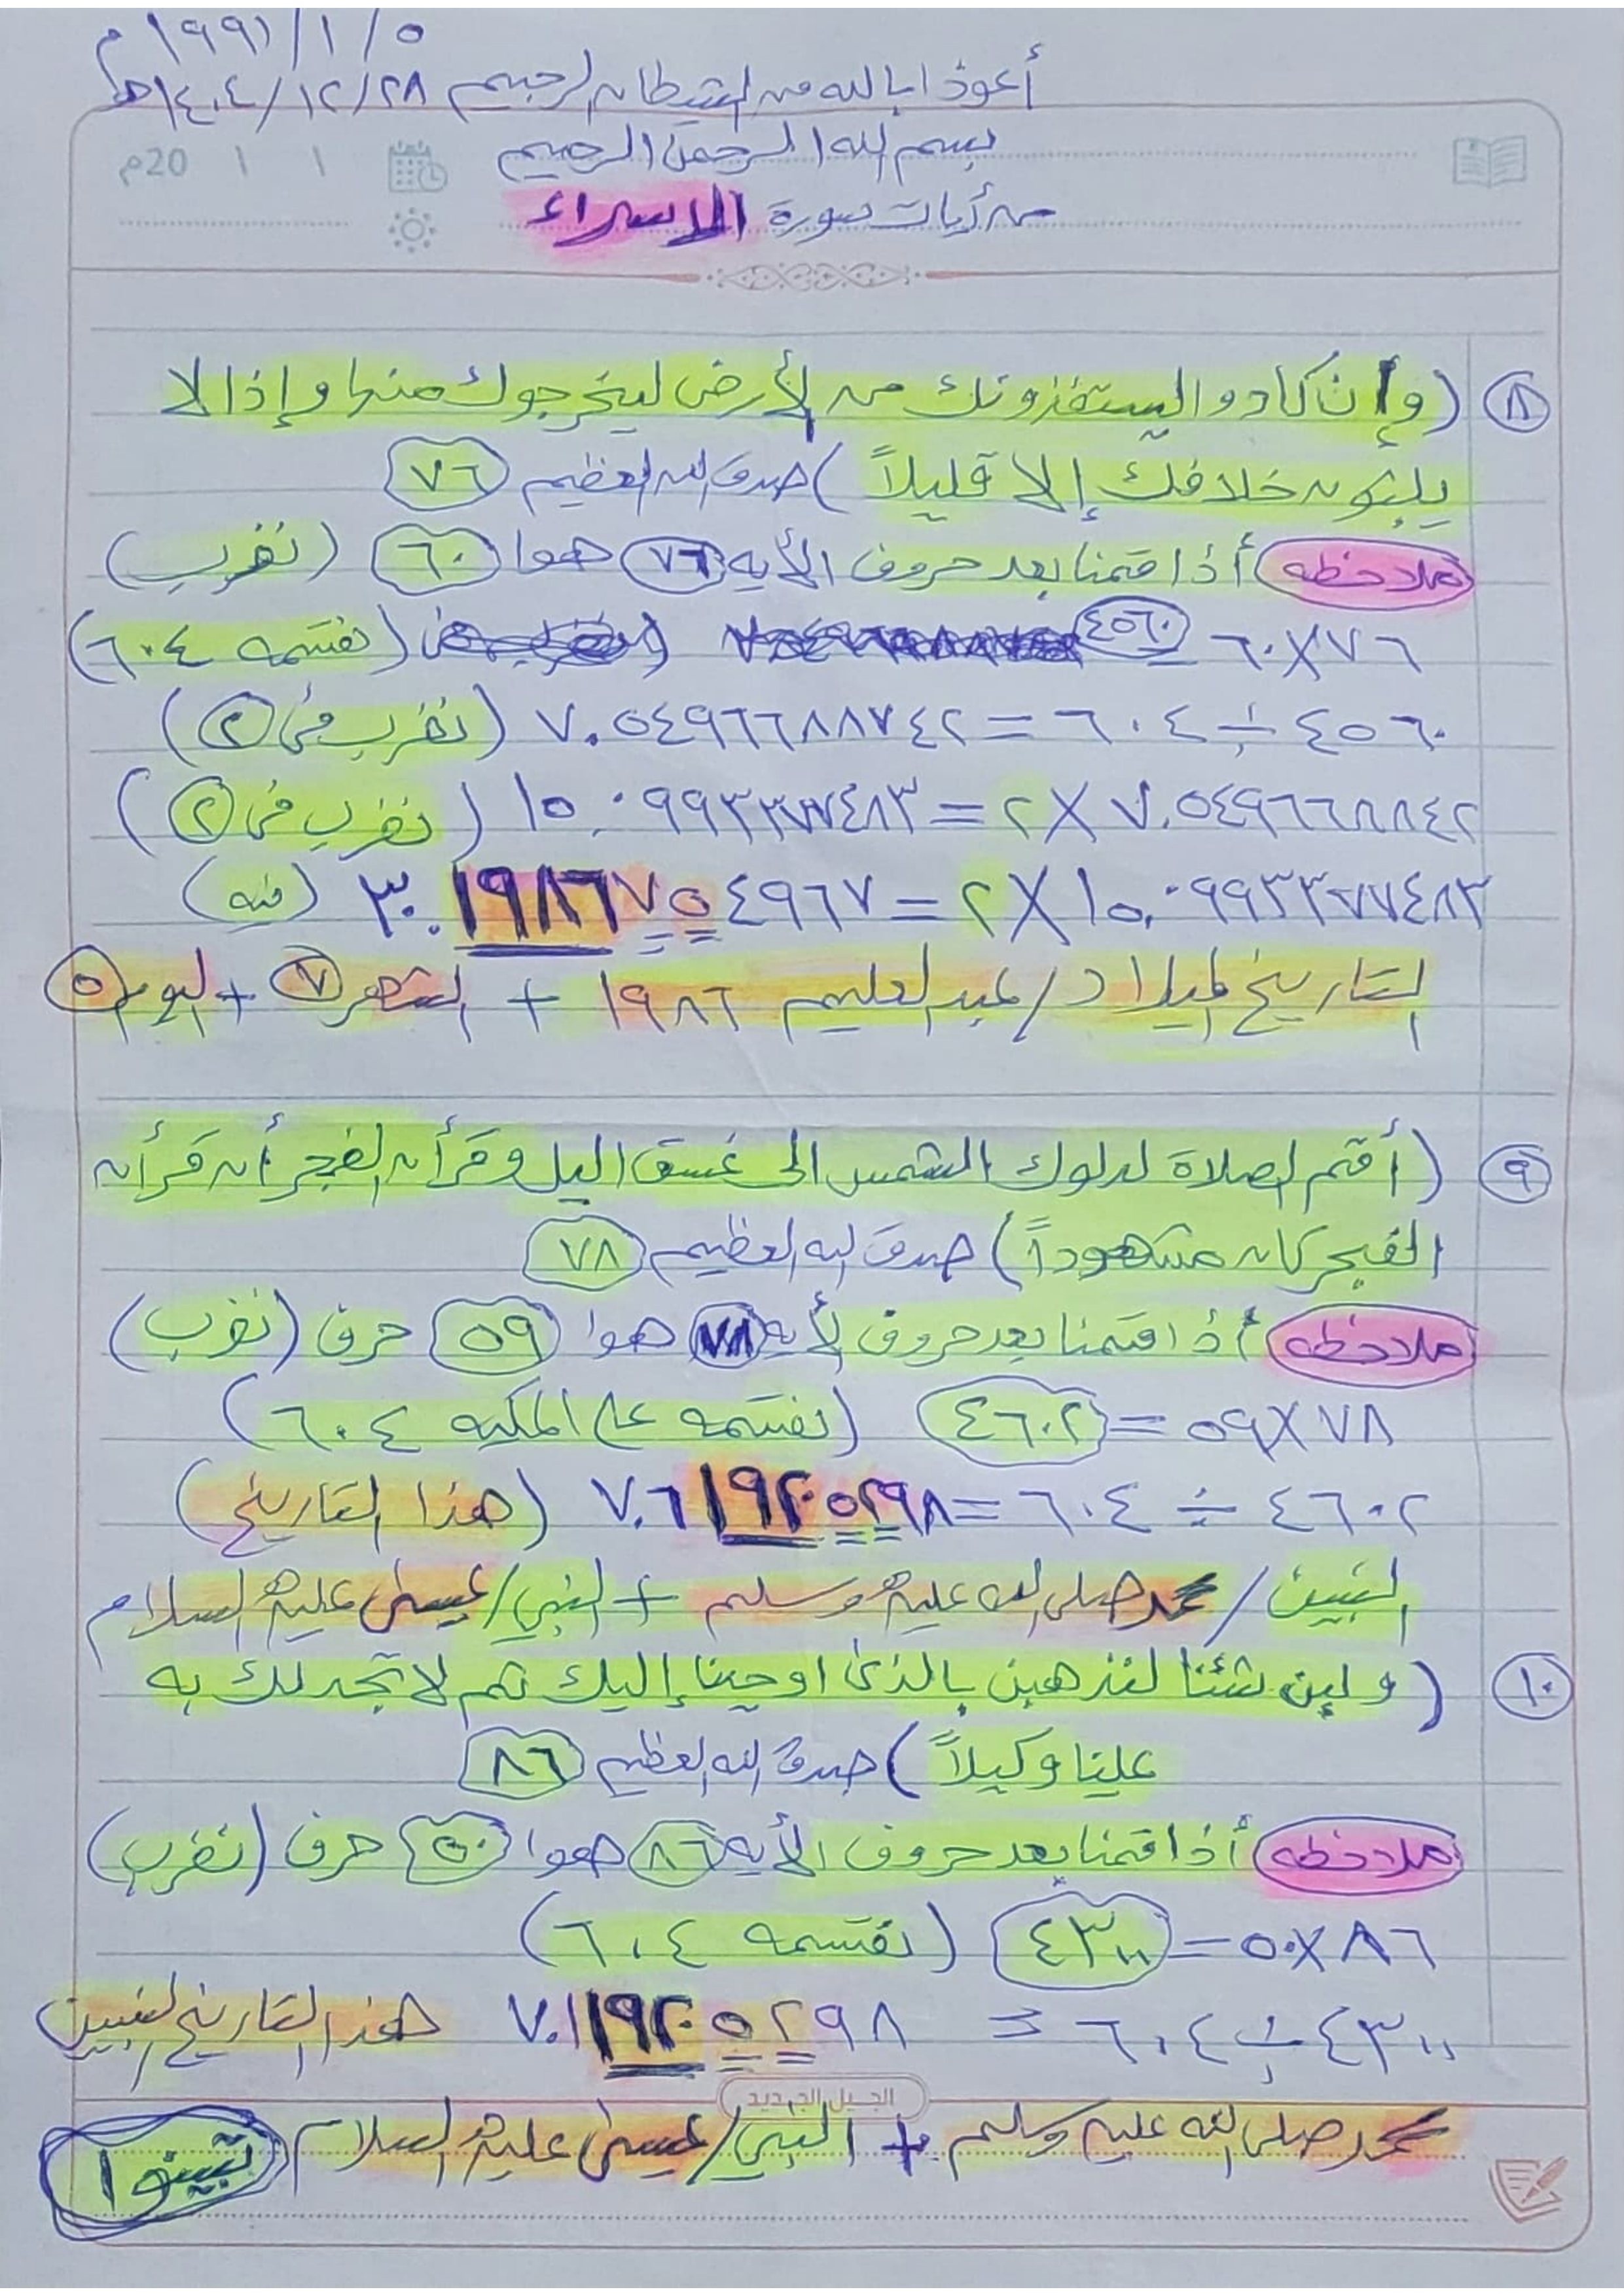 ٥ / ١ / ١٩٩١ م
أعوذ ابالله من الشيطان الرجيم ٢٨ / ١٢ / ١٤٠٤ هـ
بسم الله الرحمن الرحيم
١ ١ 20م
من أيات سورة الاسراء
٨ (وإن كادو اليستفزونك من الأرض ليخرجوك منها وإذا لا
يلبثون خلافك إلا قليلاً) صدق الله العظيم ٧٦
ملاحظه أذا قمنا بعد حروف الأيه ٧٦ هوا ٦٠ (نضرب)
٧٦ X ٦٠ = ٤٥٦٠ (نقسمه ٦٠٤)
٤٥٦٠ ÷ ٦٠٤ = ٧.٥٤٩٦٦٨٨٧٤٢ (نضرب في ٢)
٧.٥٤٩٦٦٨٨٤٢ X ٢ = ١٥.٠٩٩٣٣٧٧٤٨٣ (نضرب في ٢)
١٥.٠٩٩٣٣٧٧٤٨٣ X ٢ = ٣٠.١٩٨٦٧٥٤٩٦٧ (فيه)
التاريخ الميلاد / عبد العليم ١٩٨٦ + الشهر ٧ + اليوم ٥
٩ (أقم الصلاة لدلوك الشمس الى غسق اليل وقرأن الفجر أن قرأن
الفجر كان مشهوداً) صدق الله العظيم ٧٨
ملاحظه أذا قمنا بعد حروف الأيه ٧٨ هوا ٥٩ حرف (نضرب)
٧٨ X ٥٩ = ٤٦٠٢ (نقسمه على المكيه ٦٠٤)
٤٦٠٢ ÷ ٦٠٤ = ٧.٦١٩٢٠٥٢٩٨ (هذا التاريخ)
النبيين / محمد صلى الله عليه وسلم + النبي / عيسى عليه السلام
١٠ (ولين شئنا لنذهبن بالذى اوحينا إليك ثم لا تجد لك به
علينا وكيلاً) صدق الله العظيم ٨٦
ملاحظه أذا قمنا بعد حروف الأيه ٨٦ هوا ٥٠ حرف (نضرب)
٨٦ X ٥٠ = ٤٣٠٠ (نقسمه ٦٠٤)
٤٣٠٠ ÷ ٦٠٤ = ٧.١١٩٢٠٥٢٩٨ هذا التاريخ النبيين
الجيل الجديد
محمد صلى الله عليه وسلم + النبي / عيسى عليه السلام تبينوا